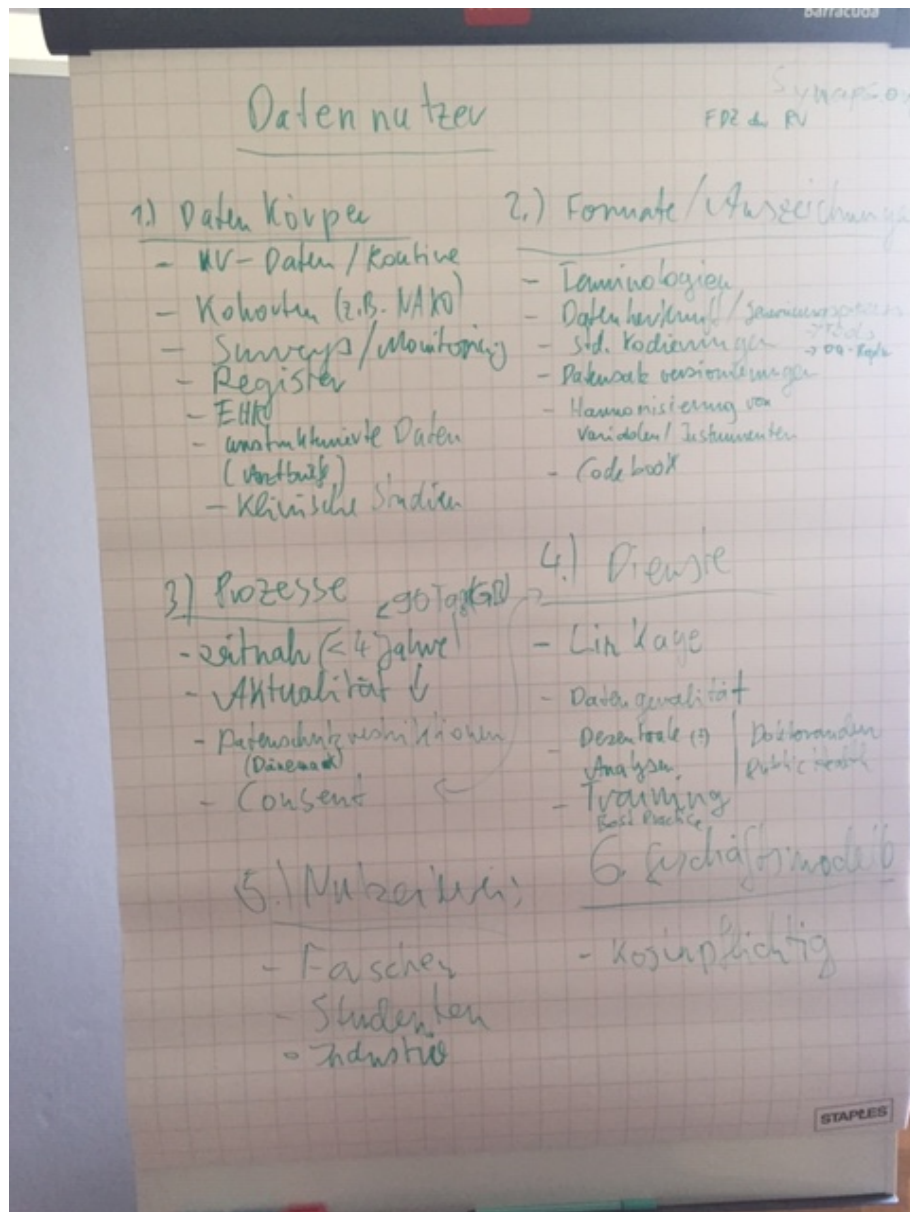 barracuda
Datennutzer
FDZ der RV
1.) Daten Körper
- KV-Daten / Routine
- Kohorten (z.B. NAKO)
- Surveys / Monitoring
- Register
- EHR
- unstrukturierte Daten
(Arztbriefe)
- Klinische Studien
2.) Formate / Auszeichnungen
- Terminologien
- Datenherkunft /
- Std. Kodierungen
- Datensatz versionierungen
- Harmonisierung von
Variablen / Instrumenten
- Codebook
3.) Prozesse
<90 Tage (GB)
- zeitnah (< 4 Jahre)
- Aktualität ↓
- Datenschutzrestriktionen
(Dänemark)
- Consent
4.) Dienste
- Linkage
- Datenqualität
- Dezentrale (?)
Analysen
Doktoranden
Public Health
- Training
Best Practice
5.) Nutzerkreis
- Forscher
- Studenten
- Industrie
6. Geschäftsmodell
- Kostenpflichtig
STAPLES